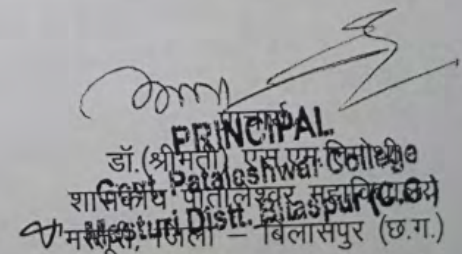 प्राचार्य
PRINCIPAL
डॉ.(श्रीमती) एस.एस.
Govt. Pataleshwar College
शासकीय पातालेश्वर महाविद्यालय
Masturi Distt. Bilaspur (C.G.)
मस्तूरी, जिला – बिलासपुर (छ.ग.)